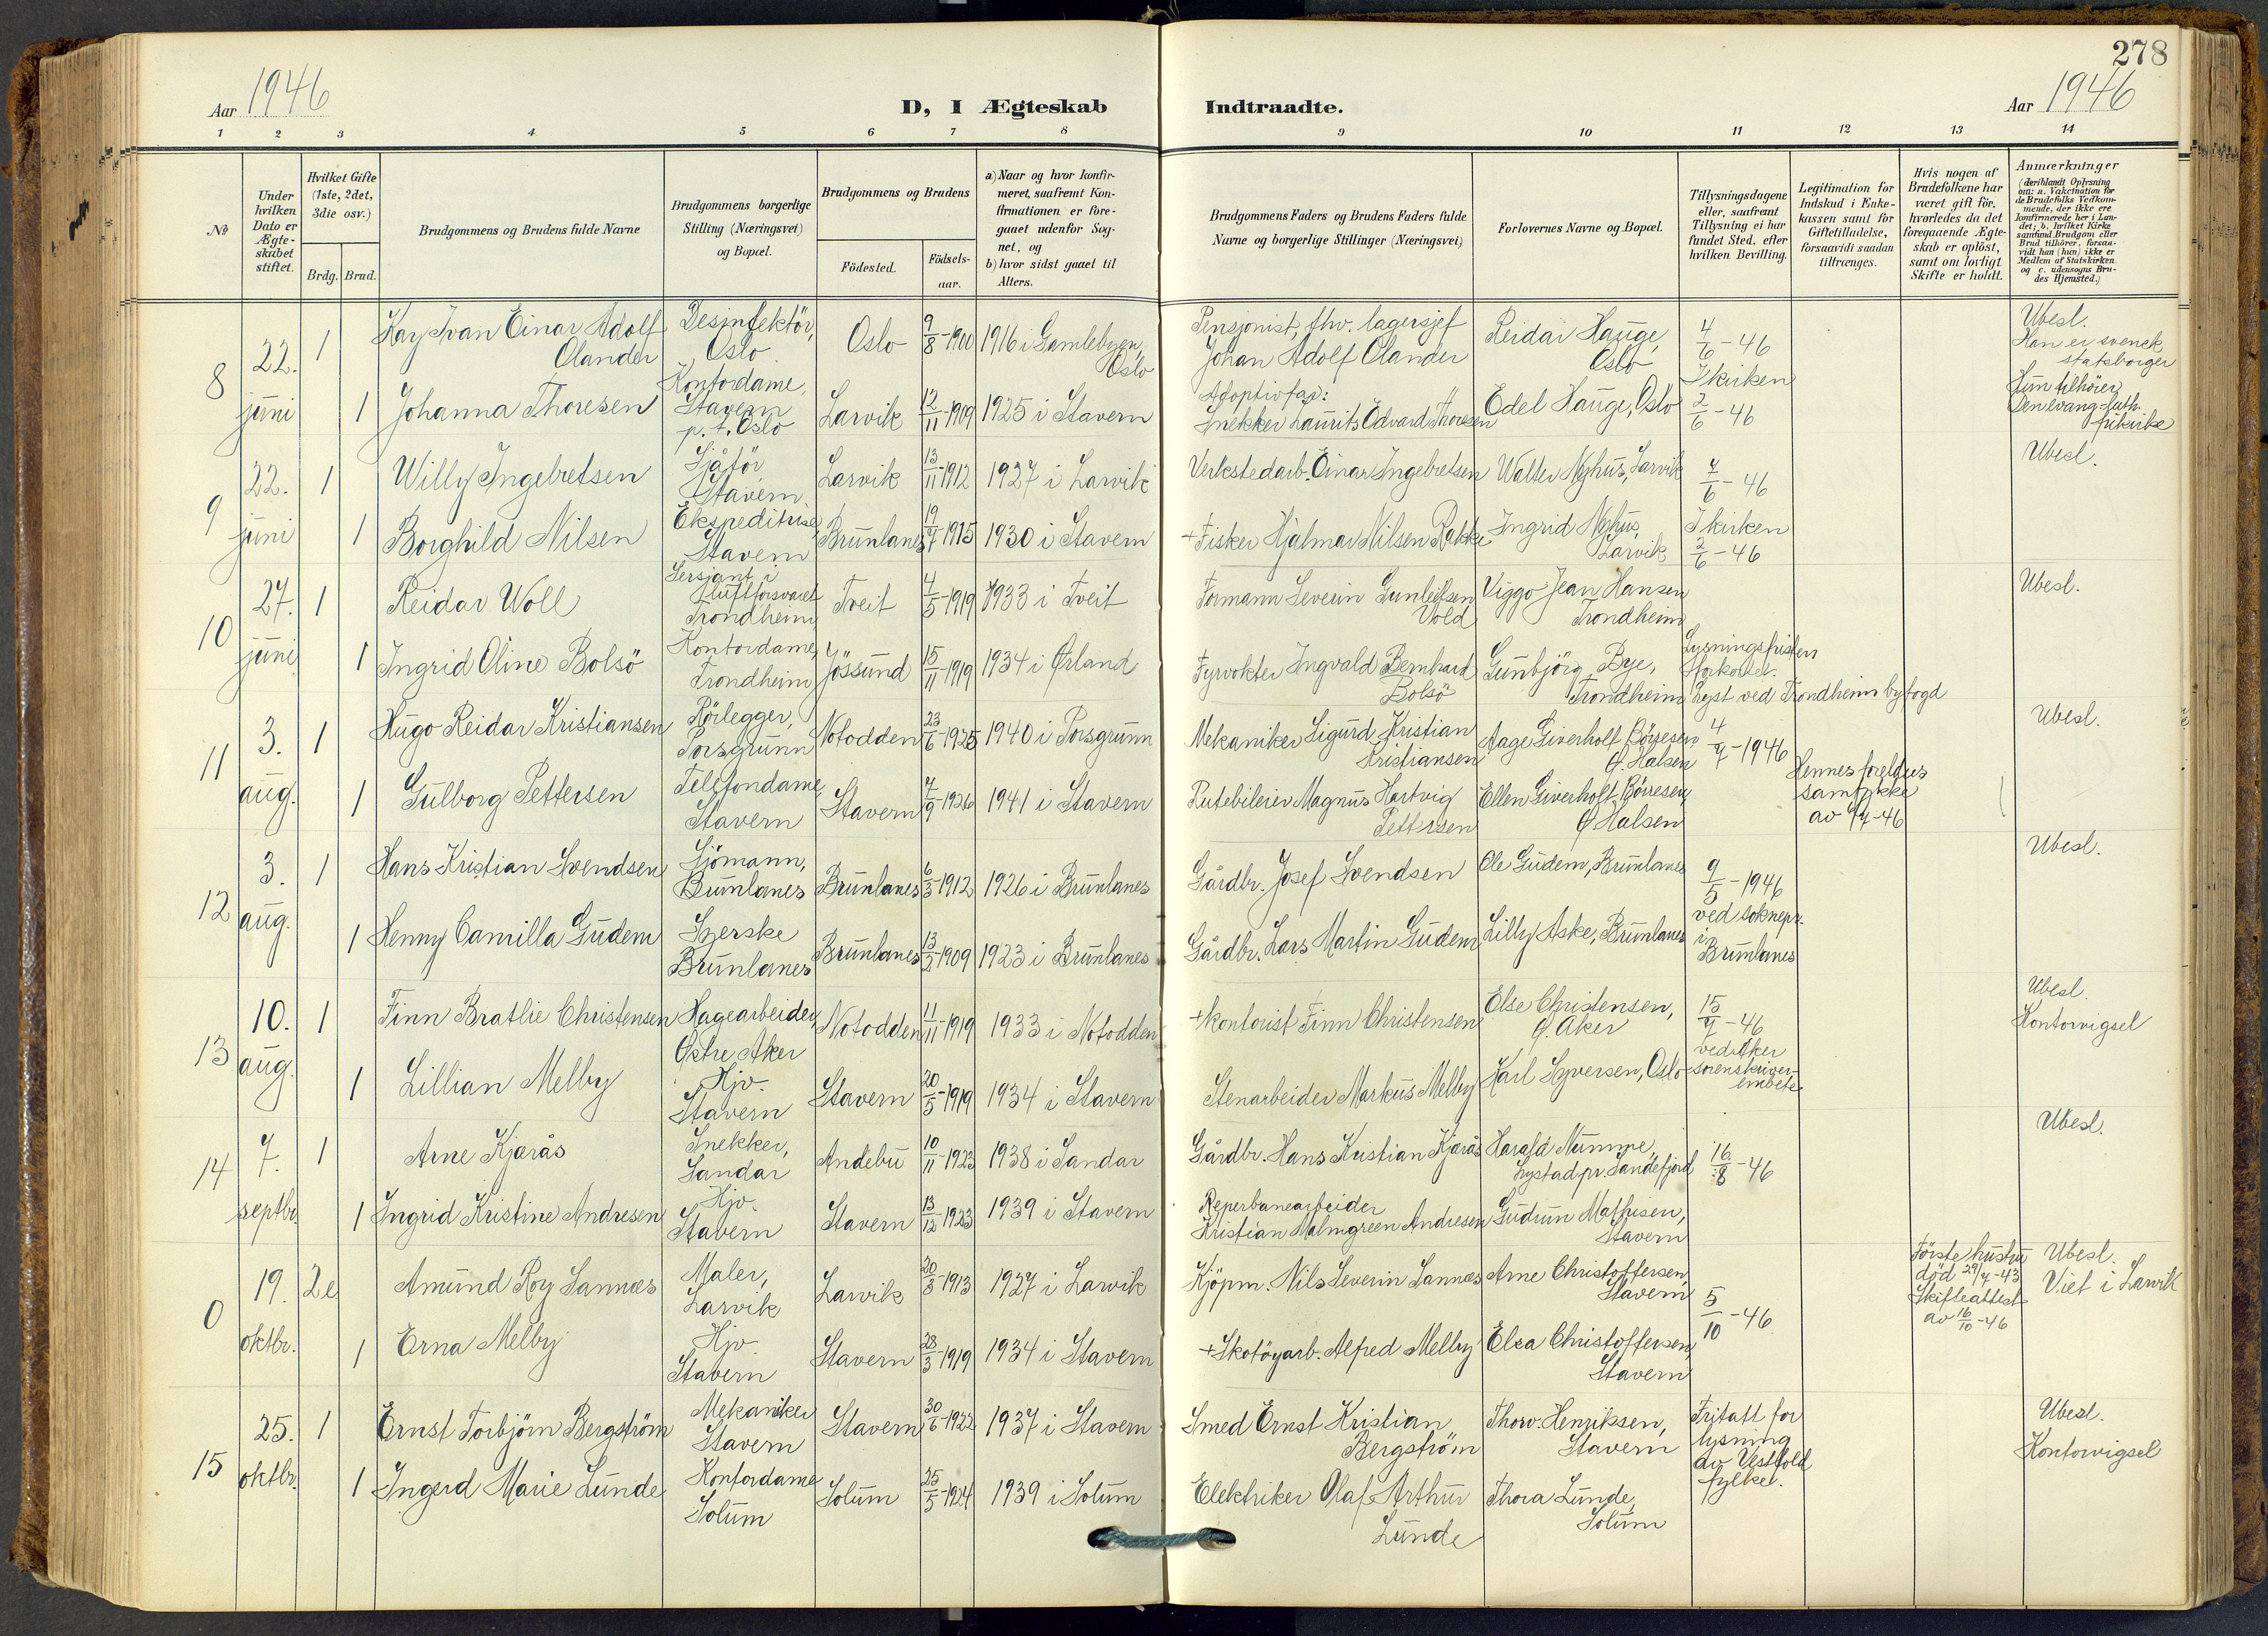 278
Aar 1946
D, I Ægteskab Indtraadte.
Aar 1946
1 2 3 4 5 6 7 8 9 10 11 12 13 14
No
Under
hvilken
Dato er
Ægte-
skabet
stiftet.
Hvilket Gifte
(1ste, 2det,
3die osv.)
Brdg. Brud.
Brudgommens og Brudens fulde Navne
Brudgommens borgerlige
Stilling (Næringsvei)
og Bopæl.
Brudgommens og Brudens
Födested.
Födsels-
aar.
a) Naar og hvor konfir-
meret, saafremt Kon-
firmationen er fore-
gaaet udenfor Sog-
net, og
b) hvor sidst gaaet til
Alters.
Brudgommens Faders og Brudens Faders fulde
Navne og borgerlige Stillinger (Næringsvei)
Forlovernes Navne og Bopæl.
Tillysningsdagene
eller, saafremt
Tillysning ei har
fundet Sted, efter
hvilken Bevilling.
Legitimation for
Indskud i Enke-
kassen samt for
Giftetilladelse,
forsaavidt saadan
tiltrænges.
Hvis nogen af
Brudefolkene har
været gift för,
hvorledes da det
foregaaende Ægte-
skab er oplöst,
samt om lovligt
Skifte er holdt.
Anmærkninger
(deriblandt Oplysning
om: a. Vakcination for
de Brudefolks Vedkom-
mende, der ikke ere
konfirmerede her i Lan-
det; b. hvilket Kirke
samfund Brudgom eller
Brud tilhörer, forsaa-
vidt han (hun) ikke er
Medlem af Statskirken
og c. udensogns Bru-
des Hjemsted.)
8
22.
juni
1
Kay Ivan Einar Adolf
Olander
Desinfektör,
Oslo
Oslo
9/8-1900
1916 i Gamlebyen,
Oslo
Pensjonist, fhv. lagersjef
Johan Adolf Olander
Reidar Hauge,
Oslo
4/6-46
Ubesl.
Han er svensk
statsborger
1
Johanna Thoresen
Kontordame,
Stavern
p.t. Oslo
Larvik
12/11-1909
1925 i Stavern
Adoptivfar:
Snekker Laurits Edvard Thoresen
Edel Hauge, Oslo
I kirken
2/6-46
Hun tilhører
Den evang-luth.
frikirke
9
22.
juni
1
Willy Ingebretsen
Sjåför
Stavern
Larvik
13/11-1912
1927 i Larvik
Verkstedarb. Einar Ingebretsen
Walter Nyhus, Larvik
4/6-46
Ubesl.
1
Borghild Nilsen
Ekspeditrise,
Stavern
Brunlanes
19/7-1915
1930 i Stavern
+Fisker Hjalmar Nilsen Rakke
Ingrid Nyhus,
Larvik
I kirken
2/6-46
10
27.
juni
1
Reidar Woll
Sersjant i
Luftforsvaret
Trondheim
Tveit
4/5-1919
1933 i Tveit
Formann Severin Gunleifsen
Vold
Viggo Jean Hansen
Trondheim
Ubesl.
1
Ingrid Oline Bolsö
Kontordame,
Trondheim
Jössund
15/11-1919
1934 i Ørland
Fyrvokter Ingvald Bernhard
Bolsö
Gunbjörg Bye,
Trondheim
Lysningsfristen
forkortet.
Lyst ved Trondheim byfogd
11
3.
aug.
1
Hugo Reidar Kristiansen
Rörlegger,
Porsgrunn
Notodden
23/6-1925
1940 i Porsgrunn
Mekaniker Sigurd Kristian
Kristiansen
Aage Giverholt Börresen
Ø. Halsen
4/7-1946
Ubesl.
1
Gulborg Pettersen
Telefondame,
Stavern
Stavern
7/9-1926
1941 i Stavern
Rutebileier Magnus Hartvig
Pettersen
Ellen Giverholt Börresen,
Ø. Halsen
Hennes foreldres
samtykke
av 4/7-46
12
3.
aug.
1
Hans Kristian Svendsen
Sjömann,
Brunlanes
Brunlanes
6/3-1912
1926 i Brunlanes
Gårdbr. Josef Svendsen
Ole Gudem, Brunlanes
9/5-1946
Ubesl.
1
Henny Camilla Gudem
Syerske
Brunlanes
Brunlanes
13/2-1909
1923 i Brunlanes
Gårdbr. Lars Martin Gudem
Lilly Aske, Brunlanes
ved soknepr.
i
Brunlanes
13
10.
aug.
1
Finn Bratlie Christensen
Hagearbeider
Østre Aker
Notodden
11/11-1919
1933 i Notodden
+Kontorist Finn Christensen
Else Christensen,
Ø. Aker
15/7-46
ved Aker
sorenskriver-
embete
Ubesl.
Kontorvigsel
1
Lillian Melby
Hjv.
Stavern
Stavern
20/5-1919
1934 i Stavern
Stenarbeider Markus Melby
Karl Syversen, Oslo
14
7.
septbr.
1
Arne Kjærås
Snekker,
Sandar
Andebu
10/11-1923
1938 i Sandar
Gårdbr. Hans Kristian Kjærås
Harald Numme,
Lystad pr. Sandefjord
16/8-46
Ubesl.
1
Ingrid Kristine Andresen
Hjv.
Stavern
Stavern
13/12-1923
1939 i Stavern
Reperbanearbeider
Kristian Malmgreen Andresen
Gudrun Mathisen,
Stavern
0
19.
oktbr.
2e
Amund Roy Sannæs
Maler,
Larvik
Larvik
20/3-1913
1927 i Larvik
Kjöpm. Nils Severin Sannæs
Arne Christoffersen,
Stavern
5/10-46
Förste hustru
död 29/7-43
Skifteattest
av 16/10-46
Ubesl.
Viet i Larvik
1
Erna Melby
Hjv.
Stavern
Stavern
28/3-1919
1934 i Stavern
+Skotöyarb. Alfred Melby
Elsa Christoffersen,
Stavern
15
25.
oktbr.
1
Ernst Torbjörn Bergström
Mekaniker
Stavern
Stavern
30/6-1922
1937 i Stavern
Smed Ernst Kristian
Bergström
Thorv. Henriksen,
Stavern
Fritatt for
lysning
av Vestfold
fylke.
Ubesl.
Kontorvigsel
1
Ingerd Marie Lunde
Kontordame
Solum
Solum
25/5-1924
1939 i Solum
Elektriker Olaf Arthur
Lunde
Thora Lunde,
Solum